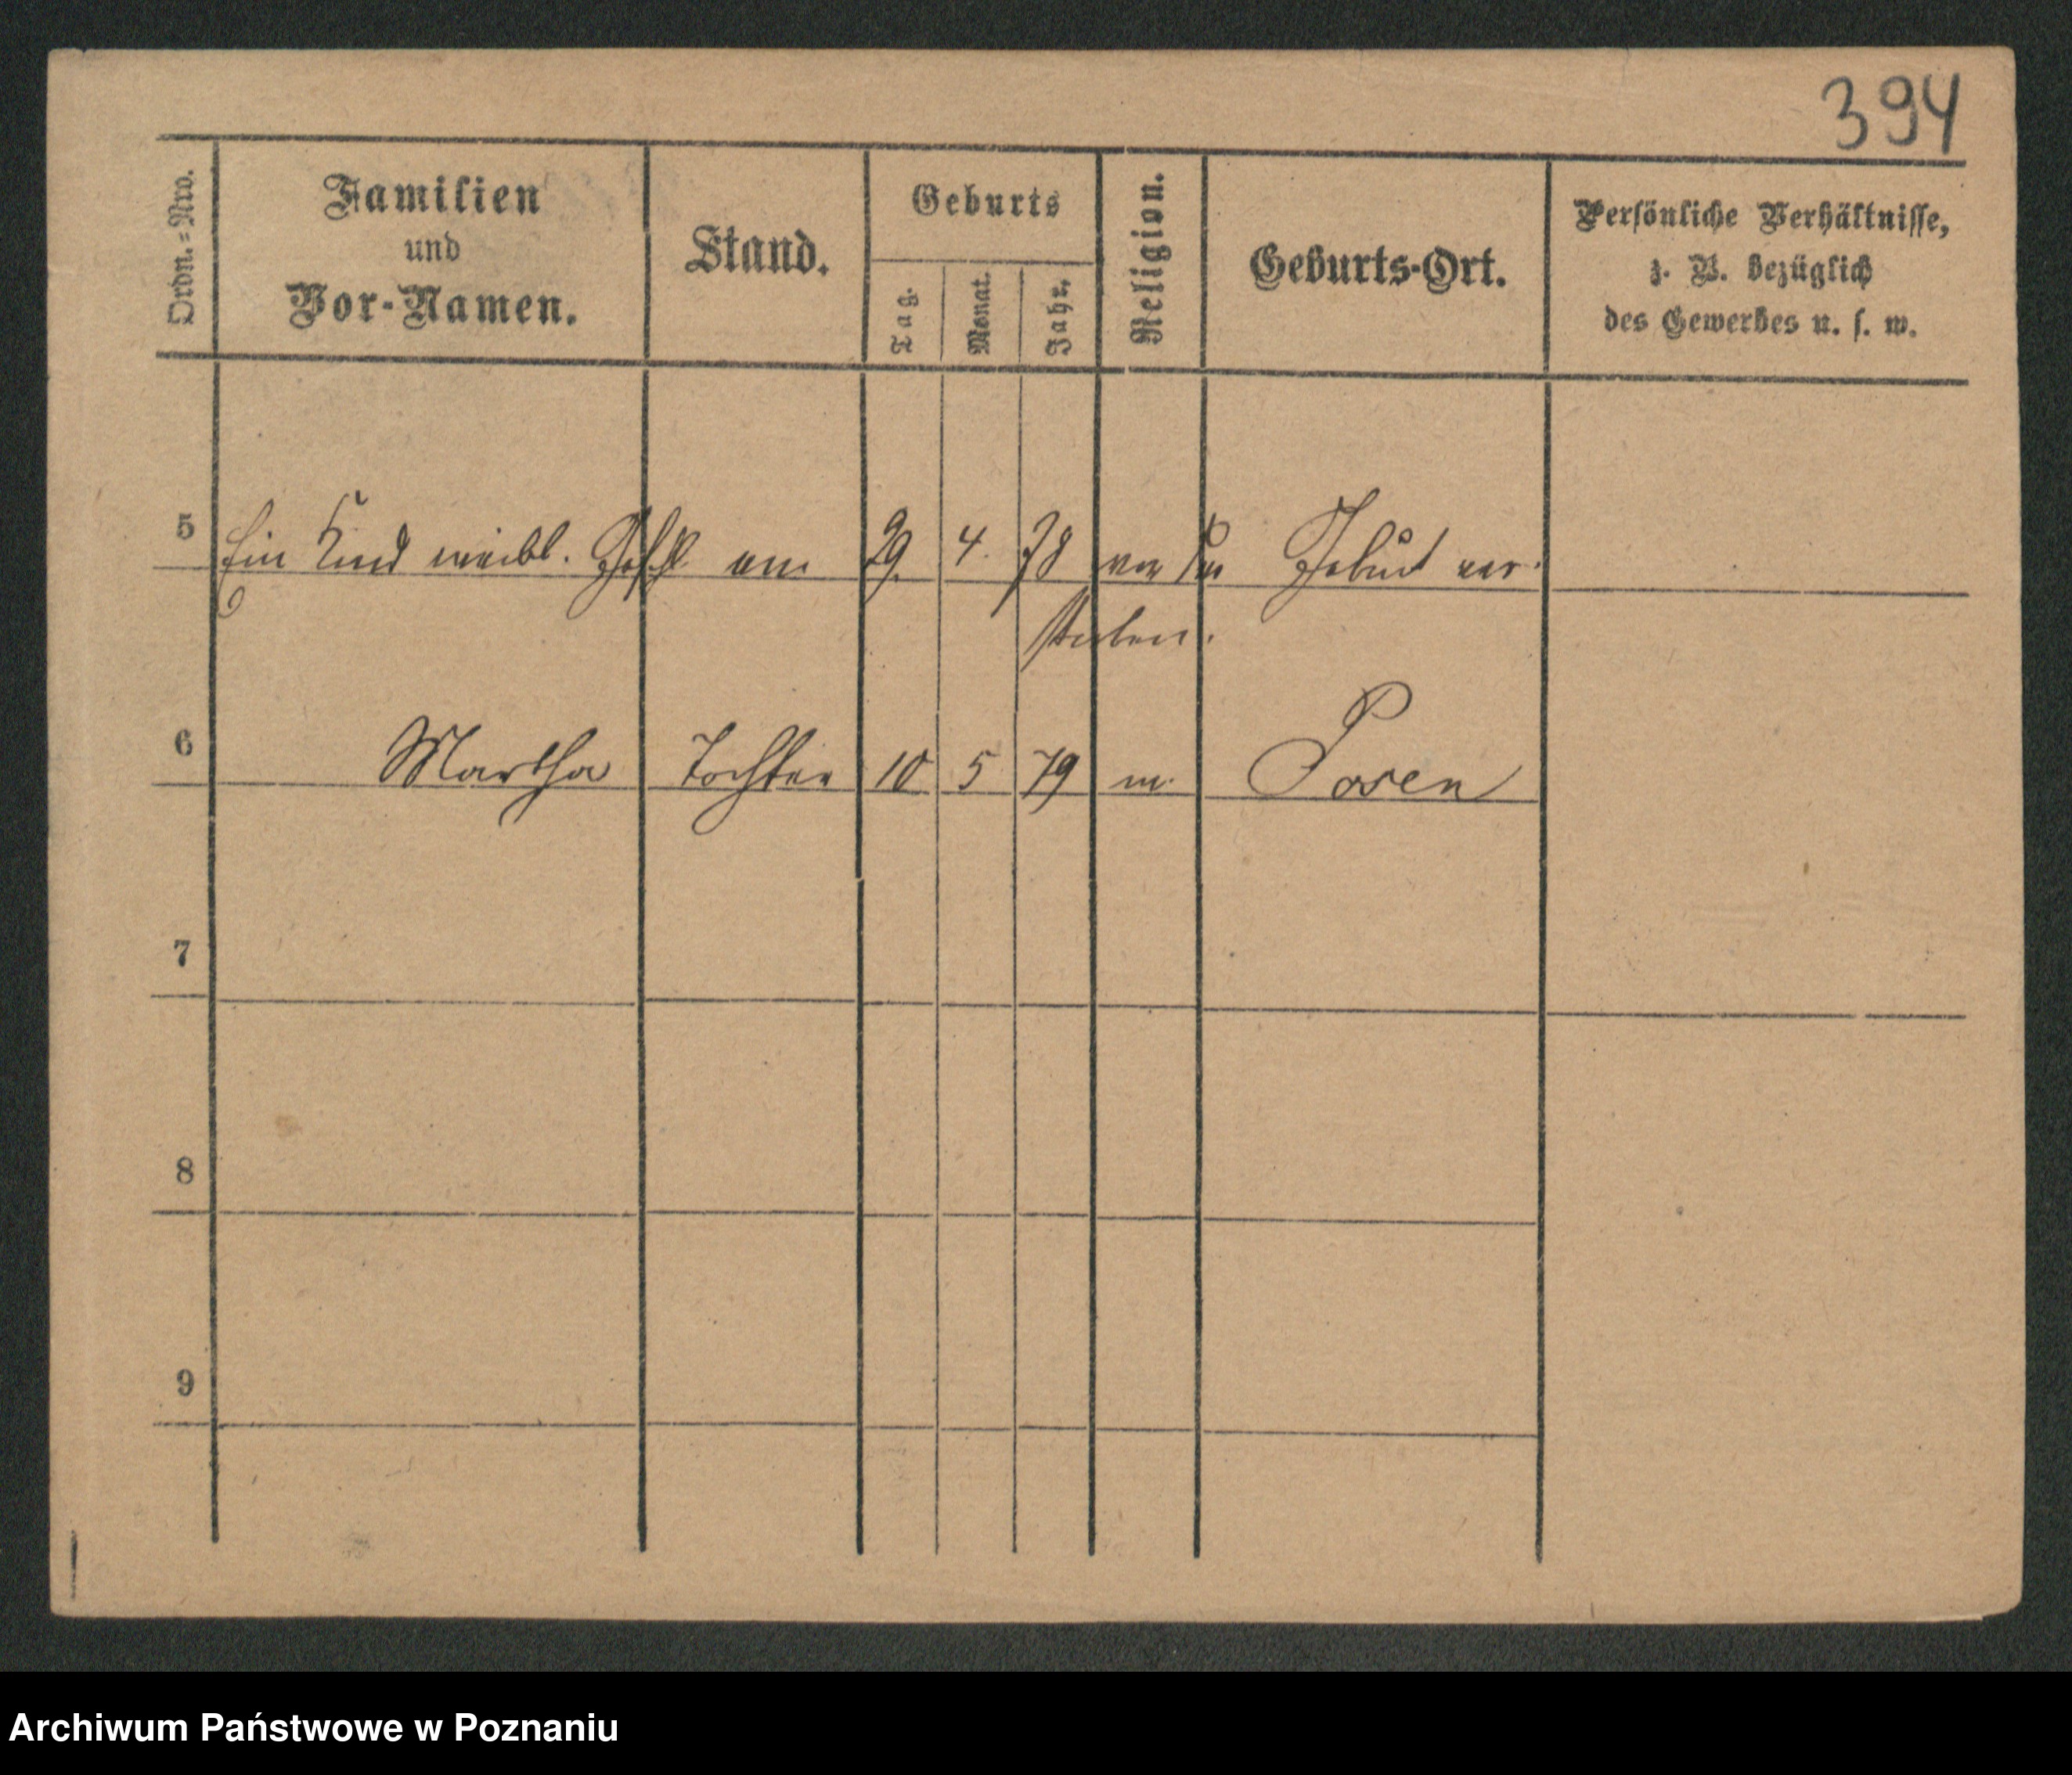 394
Ordn.=Nro.
Familien
und
Vor-Namen.
Stand.
Geburts
Tag.
Monat.
Jahr.
Religion.
Geburts-Ort.
Persönliche Verhältnisse,
z. B. bezüglich
des Gewerbes u. s. w.
5 Ein Kind weibl. Geschl. am 29. 4. 78 vor der Geburt ver-
storben.
6 Martha Tochter 10 5 79 m. Posen
7
8
9
Archiwum Państwowe w Poznaniu